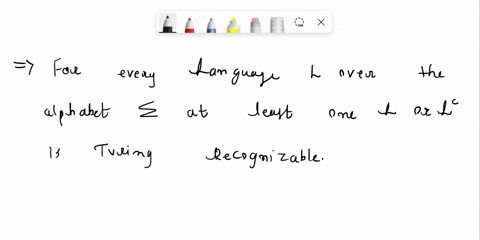 => For every Language L over the
alphabet Σ at least one L or Lᶜ
is Turing Recognizable.